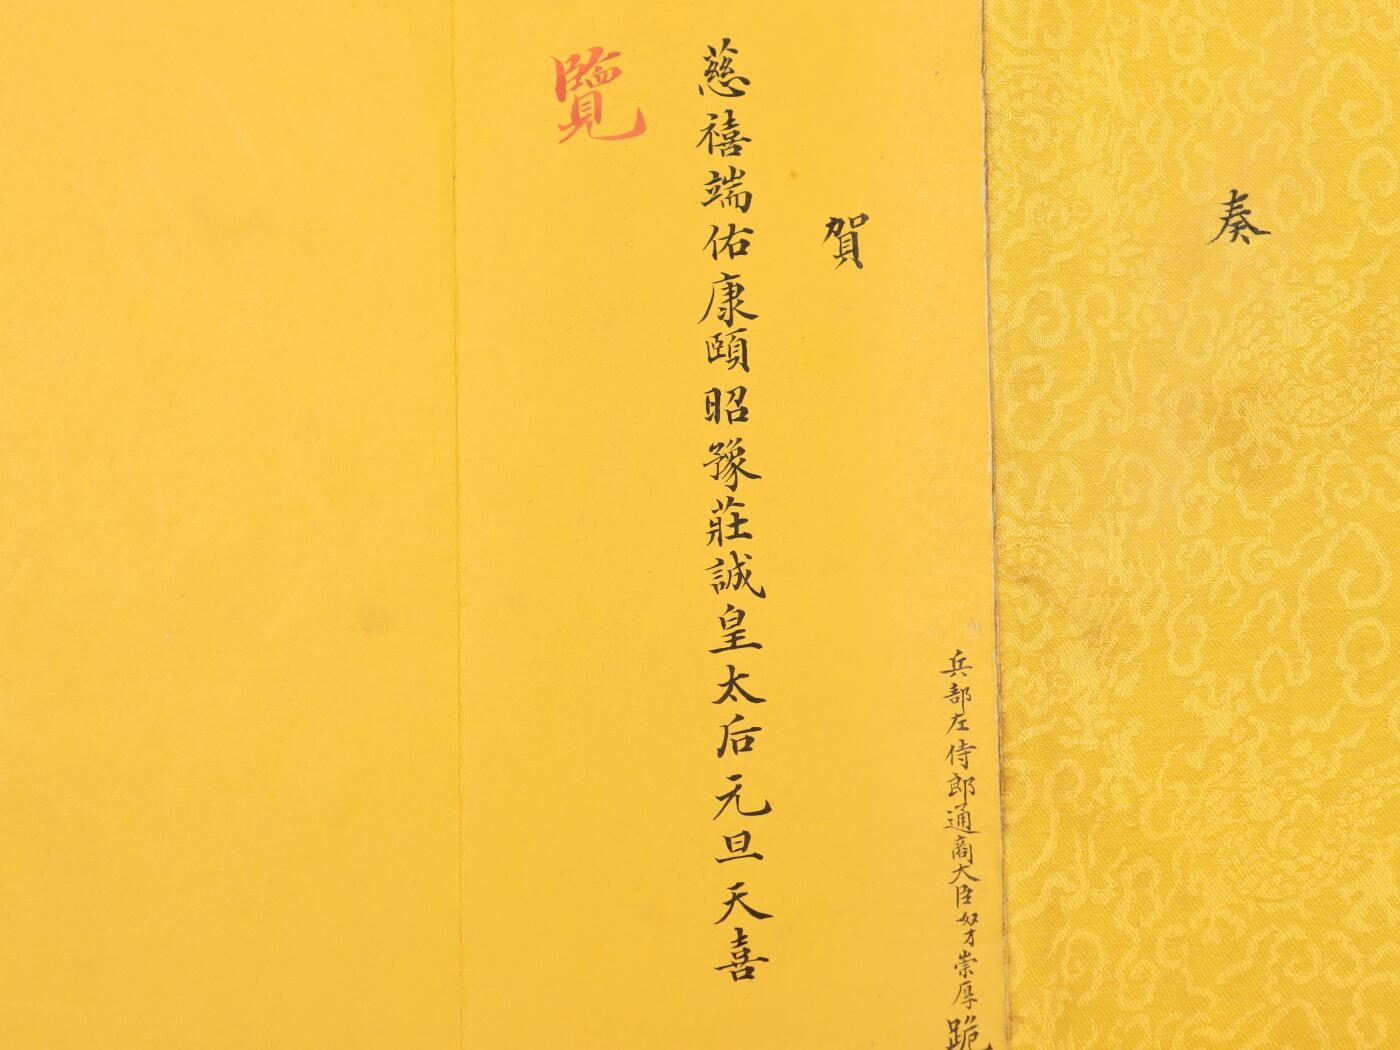 奏
兵部左侍郎通商大臣奴才崇厚跪
賀
慈禧端佑康頤昭豫莊誠皇太后元旦天喜
覽